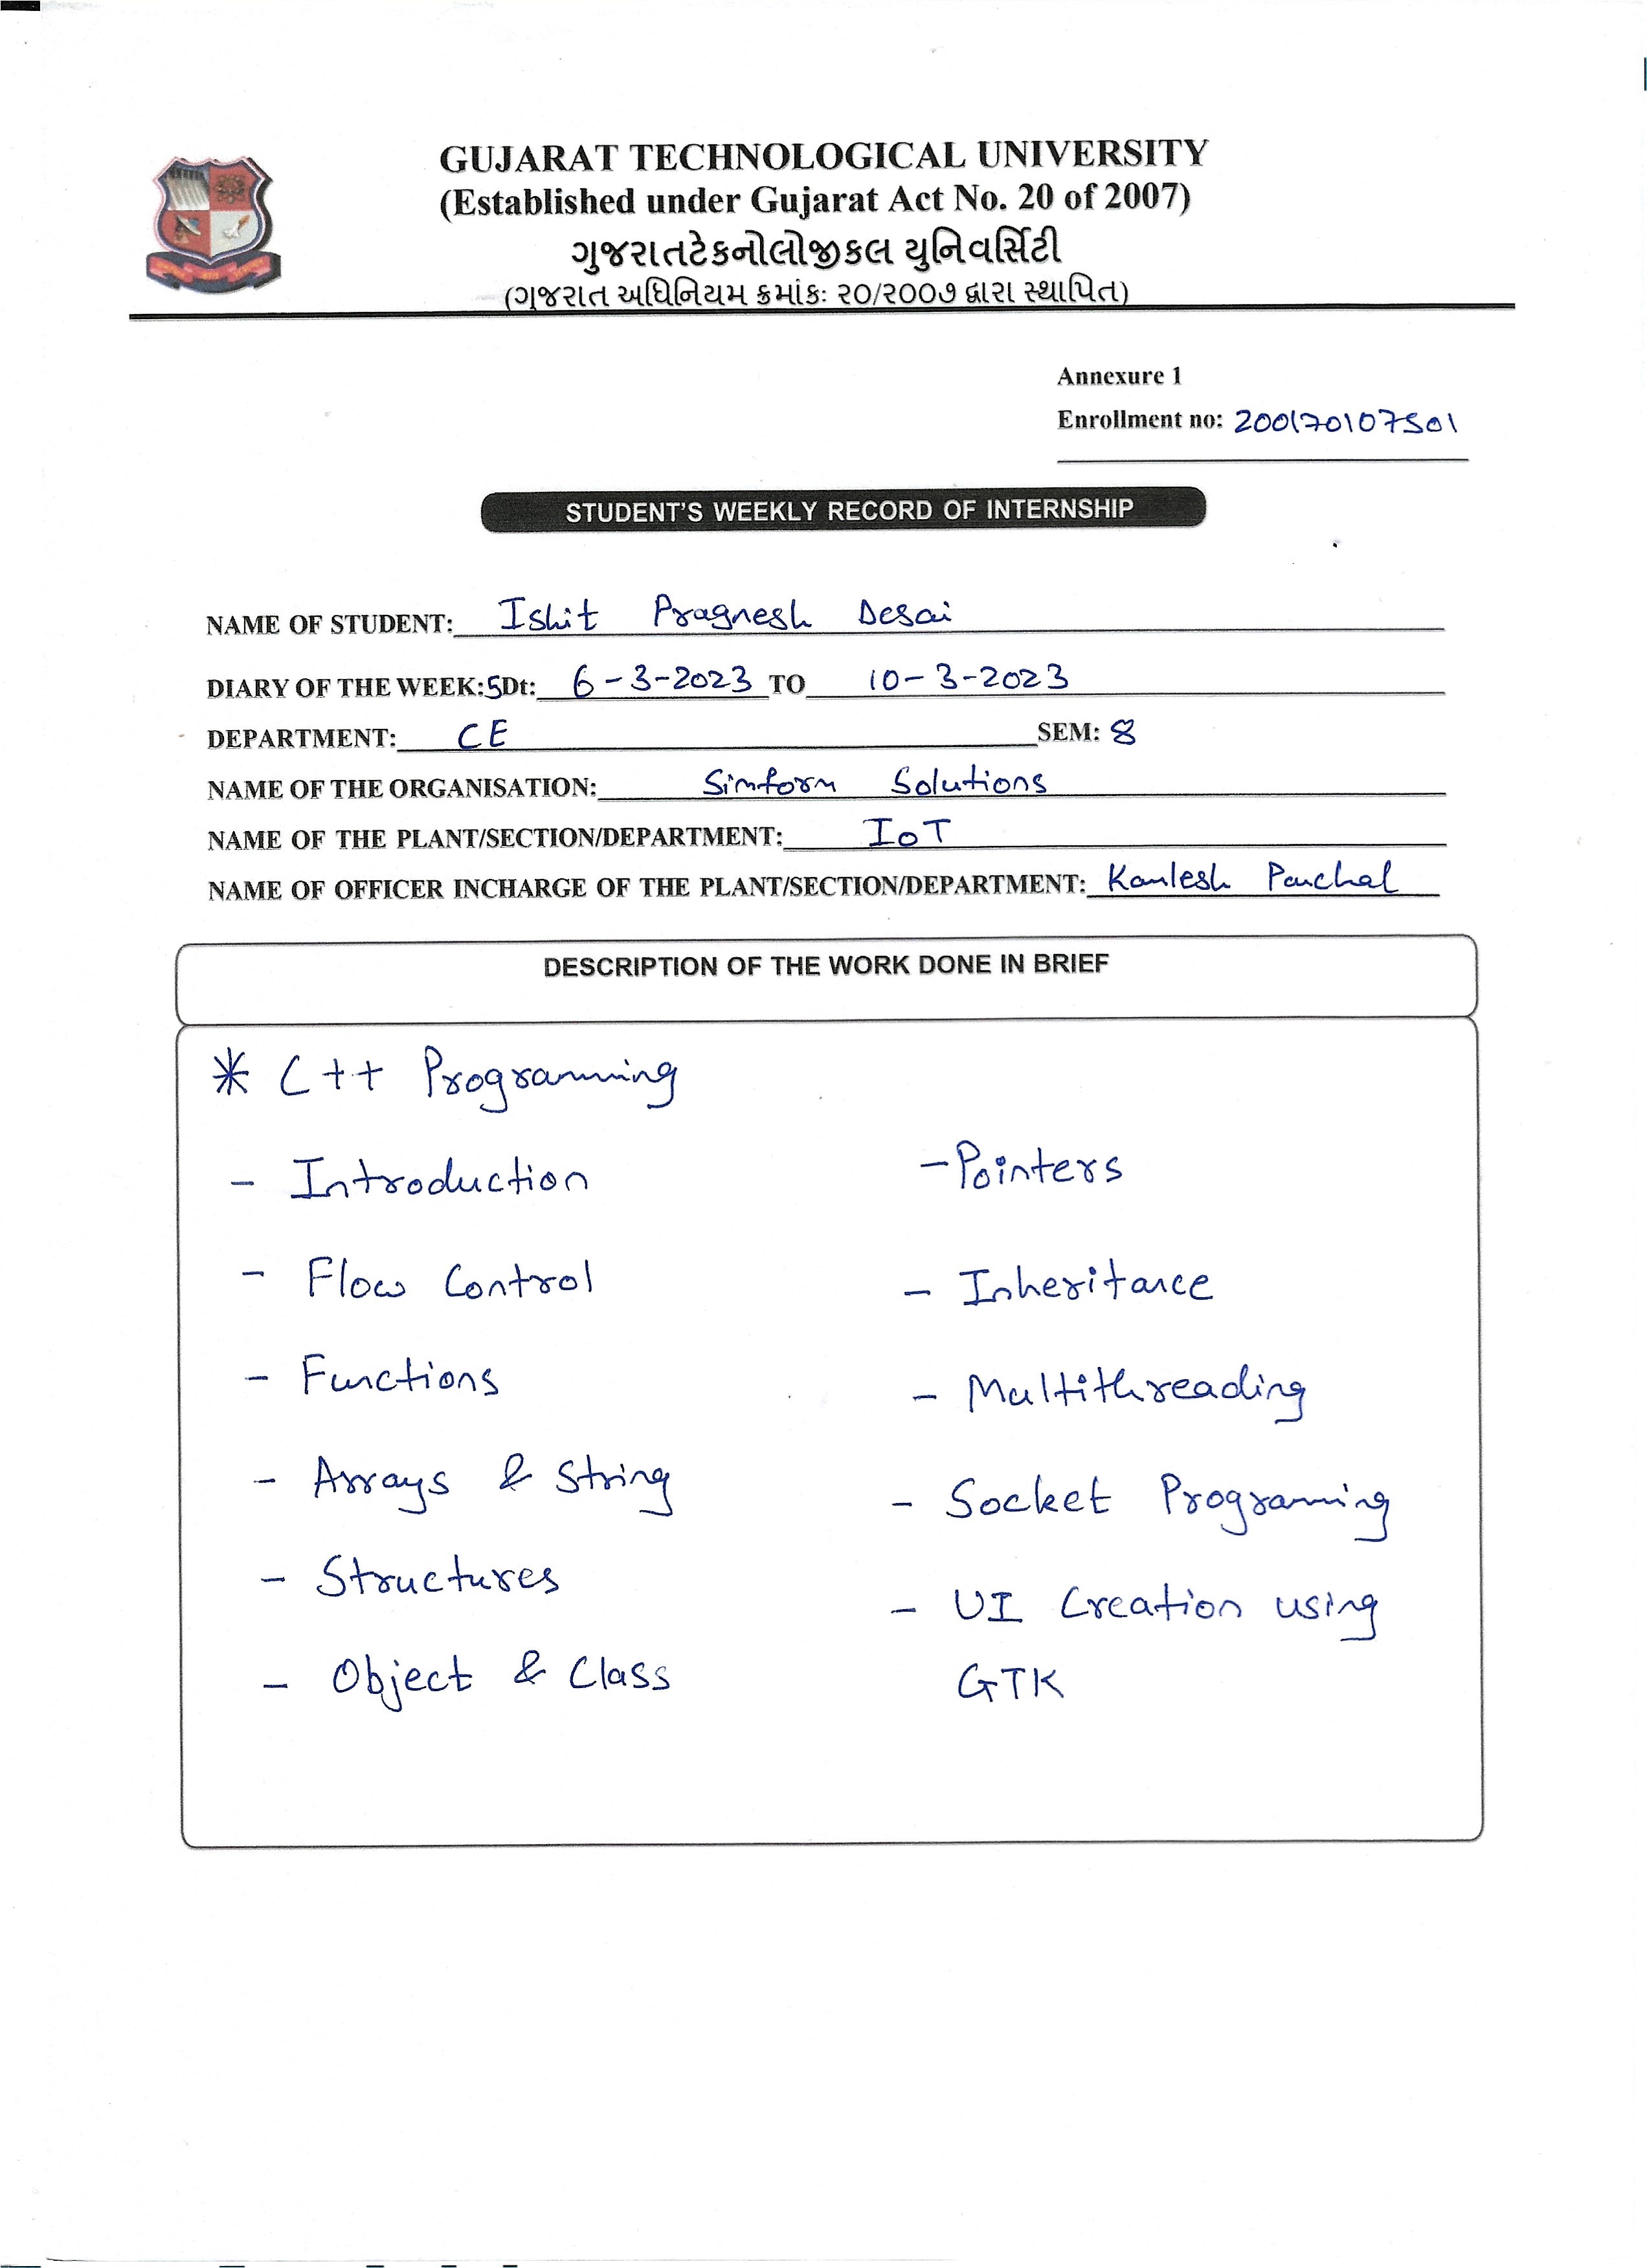 GUJARAT TECHNOLOGICAL UNIVERSITY
(Established under Gujarat Act No. 20 of 2007)
ગુજરાતટેકનોલોજીકલ યુનિવર્સિટી
(ગુજરાત અધિનિયમ ક્રમાંકઃ ૨૦/૨૦૦૭ દ્વારા સ્થાપિત)
Annexure 1
Enrollment no: 200170107501
STUDENT'S WEEKLY RECORD OF INTERNSHIP
NAME OF STUDENT: Ishit Pragnesh Desai
DIARY OF THE WEEK:5Dt: 6-3-2023 TO 10-3-2023
DEPARTMENT: CE SEM: 8
NAME OF THE ORGANISATION: Simform Solutions
NAME OF THE PLANT/SECTION/DEPARTMENT: IoT
NAME OF OFFICER INCHARGE OF THE PLANT/SECTION/DEPARTMENT: Kamlesh Panchal
DESCRIPTION OF THE WORK DONE IN BRIEF
* C++ Programming
- Introduction
- Flow Control
- Functions
- Arrays & String
- Structures
- Object & Class
- Pointers
- Inheritance
- Multithreading
- Socket Programing
- UI Creation using
GTK